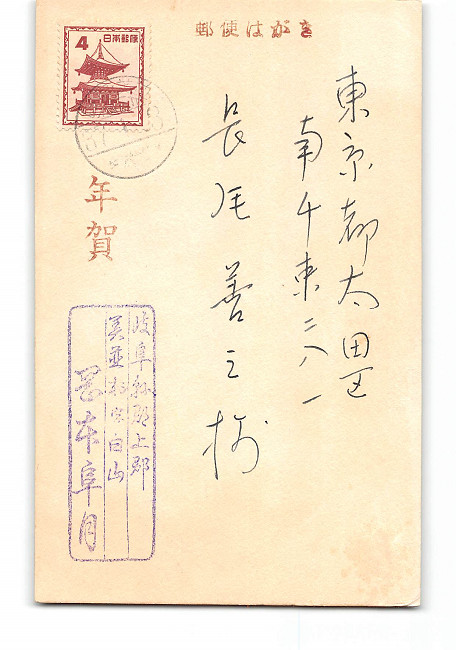 郵便はがき
4
日本郵便
年賀
東京都太田区
南千束二八一
長尾善之様
岐阜県郡上郡
美並村字白山
岡本阜月